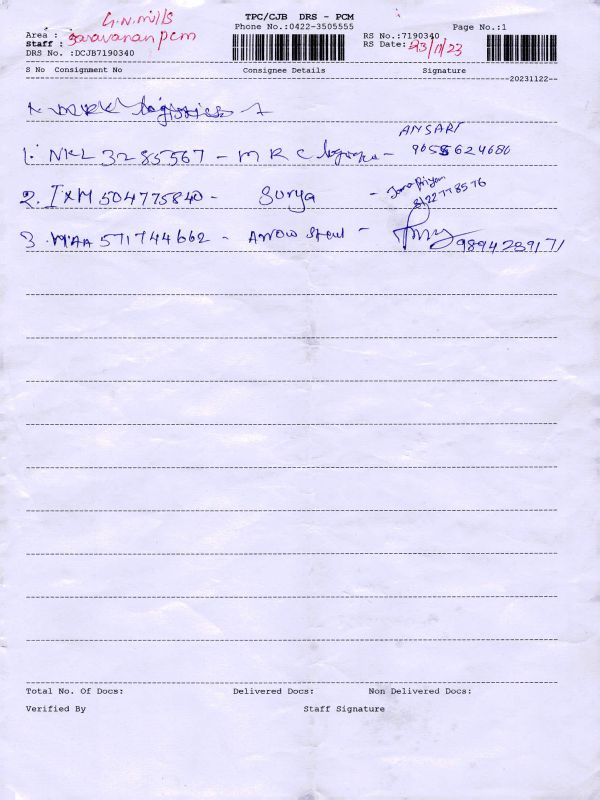 G.N.mills
TPC/CJB DRS - PCM
Area :
Phone No.:0422-3505555
Page No.:1
RS No.:7190340
Staff : Saravanan pcm
RS Date: 23/11/23
DRS No. :DCJB7190340
S No Consignment No Consignee Details Signature
20231122--
1. MRK logistics
ANSARI
1. NKL 3285567 - MRC - 9655624686
2. IXM 504775840 - Surya - Janapriyan
8122778576
3. MAA 571744662 - Arrow Steel - 9894239171
Total No. Of Docs: Delivered Docs: Non Delivered Docs:
Verified By Staff Signature